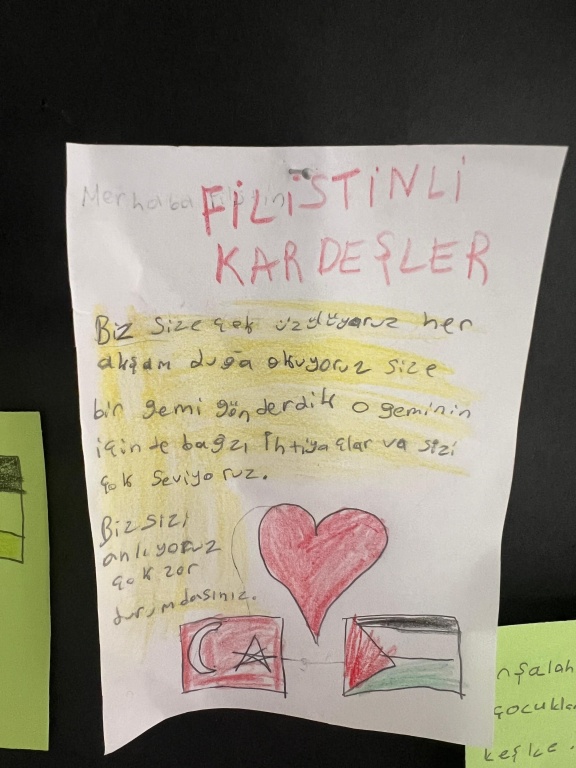 Merhaba
FİLİSTİNLİ
KARDEŞLER
Biz size çok üzülüyoruz her
akşam duğa okuyoruz size
bir gemi gönderdik o geminin
içinte bağzı İhtiyaçlar va sizi
çok seviyoruz.
Biz sizi
anlıyoruz
çok zor
durumdasınız.
nşalah
çocukla
keşke.